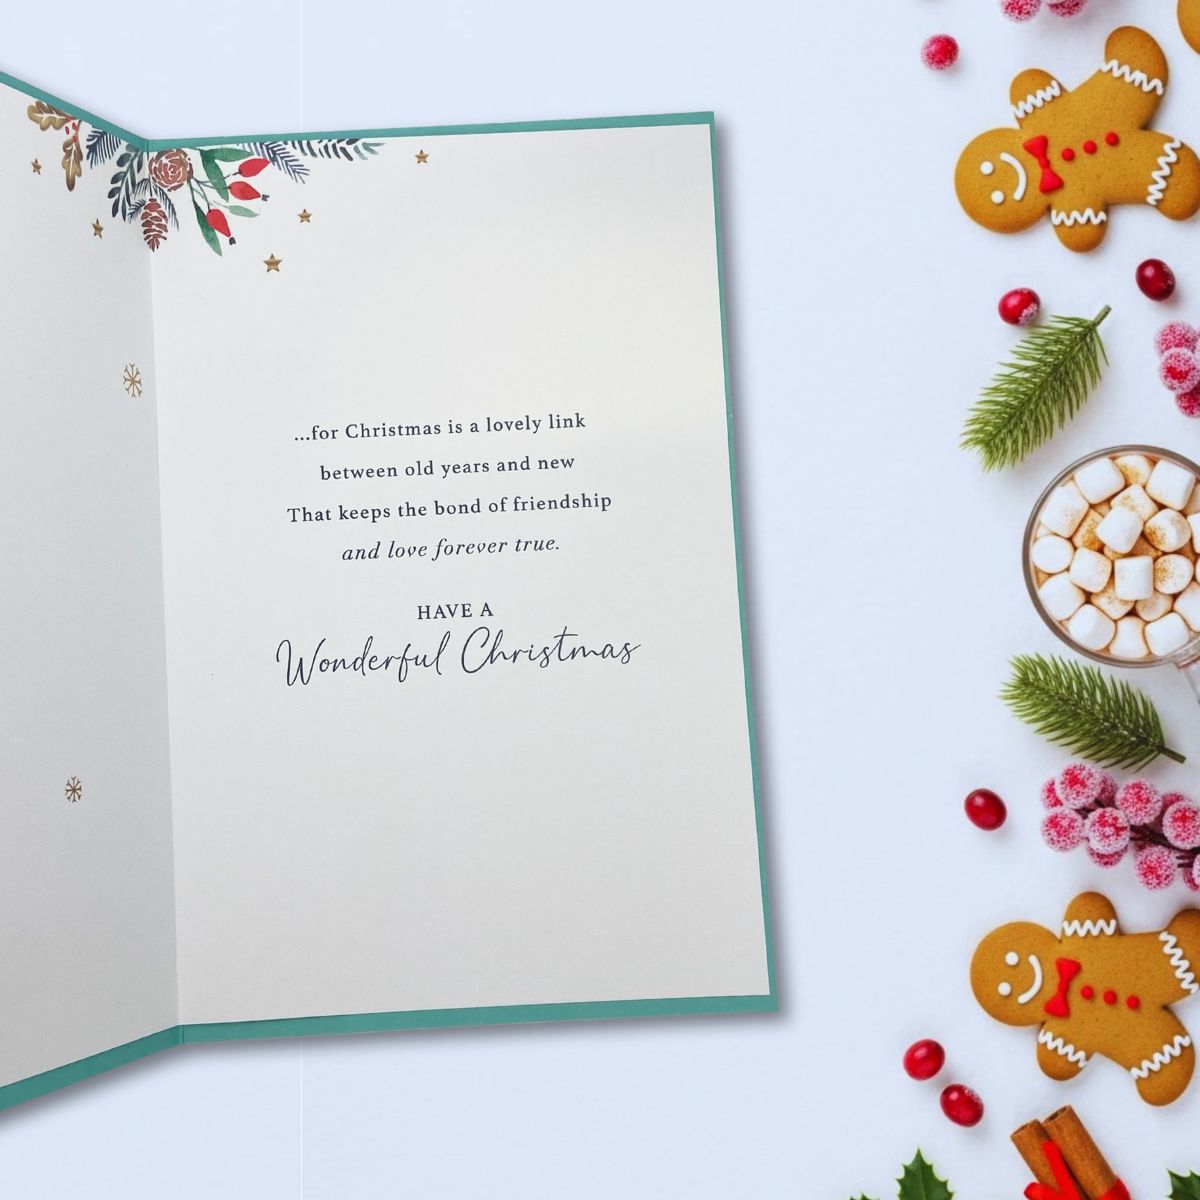 ...for Christmas is a lovely link
between old years and new
That keeps the bond of friendship
and love forever true.
HAVE A
Wonderful Christmas